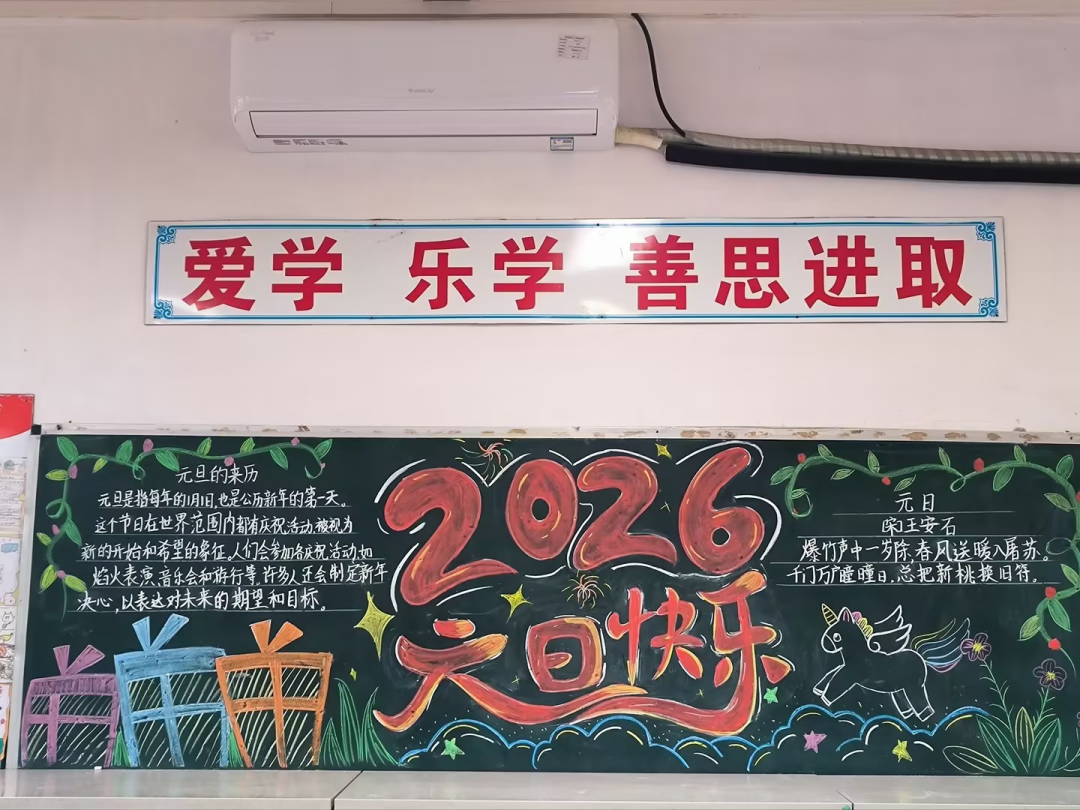 爱学 乐学 善思进取
元旦的来历
元旦是指每年的1月1日,也是公历新年的第一天。
这个节日在世界范围内都有庆祝活动,被视为
新的开始和希望的象征,人们会参加各庆祝活动,如
焰火表演、音乐会和游行等,许多人还会制定新年
决心,以表达对未来的期望和目标。
2026
元旦快乐
元日
宋|王安石
爆竹声中一岁除,春风送暖入屠苏。
千门万户曈曈日,总把新桃换旧符。